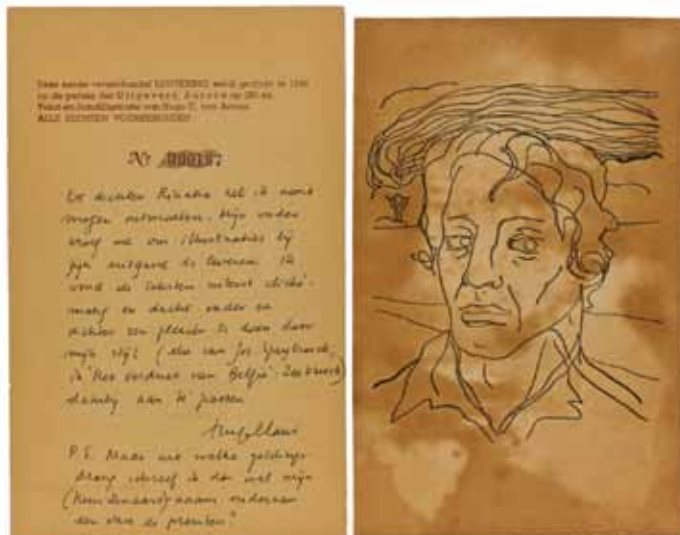 Deze eerste verzenbundel LOUTERING werd gedrukt in 19
op de persen der Uitgeverij Aurora op 250 ex.
Tekst en bandillustratie van Hugo C. van
ALLE RECHTEN VOORBEHOUDEN
Nr 00017
De dichter heb ik nooit
mogen ontmoeten. Mijn vader
vroeg me om illustraties bij
zijn uitgave te leveren. Ik
vond de teksten uiterst cliché-
matig en dacht vader en
dichter een plezier te doen door
mijn stijl (die van Jos
in 'Het verdriet van België'
daarbij aan te passen
Hugo Claus
P.S. Maar uit welke
drang schreef ik dan wel mijn
naam onderaan
een deel der prenten?